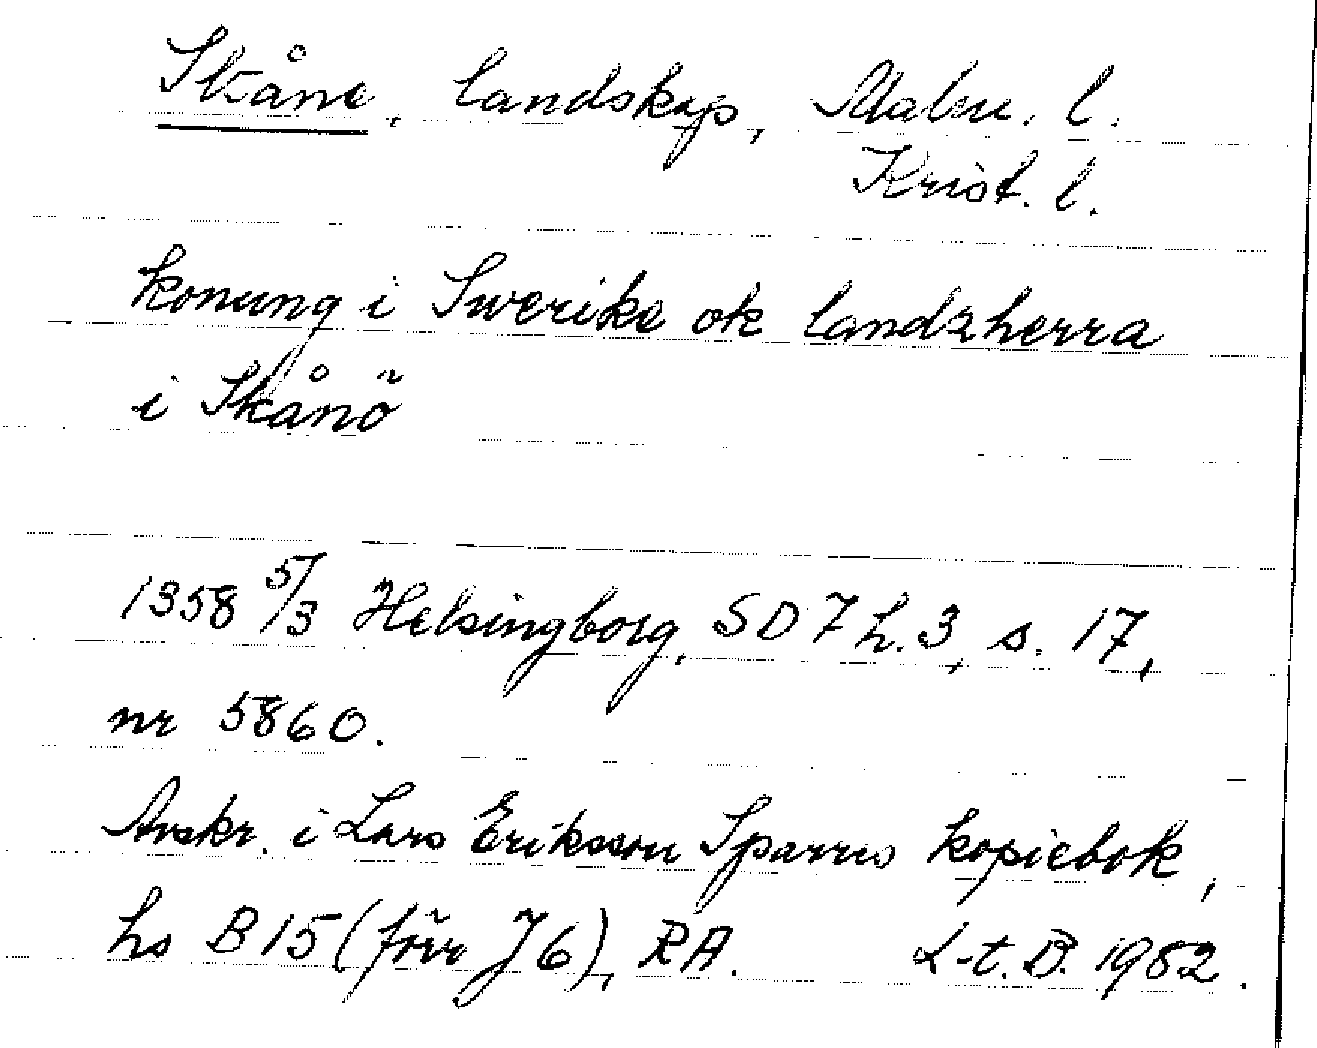 Skåne, landskap, Malm. l.
Krist. l.
konung i Swerike ok landzherra
i Skånö
1358 5/3 Helsingborg, SD 7 h. 3, s. 17,
nr 5860.
Avskr. i Lars Eriksson Sparres kopiebok,
hs B 15 (förr J 6), RA. L-t. B. 1982.